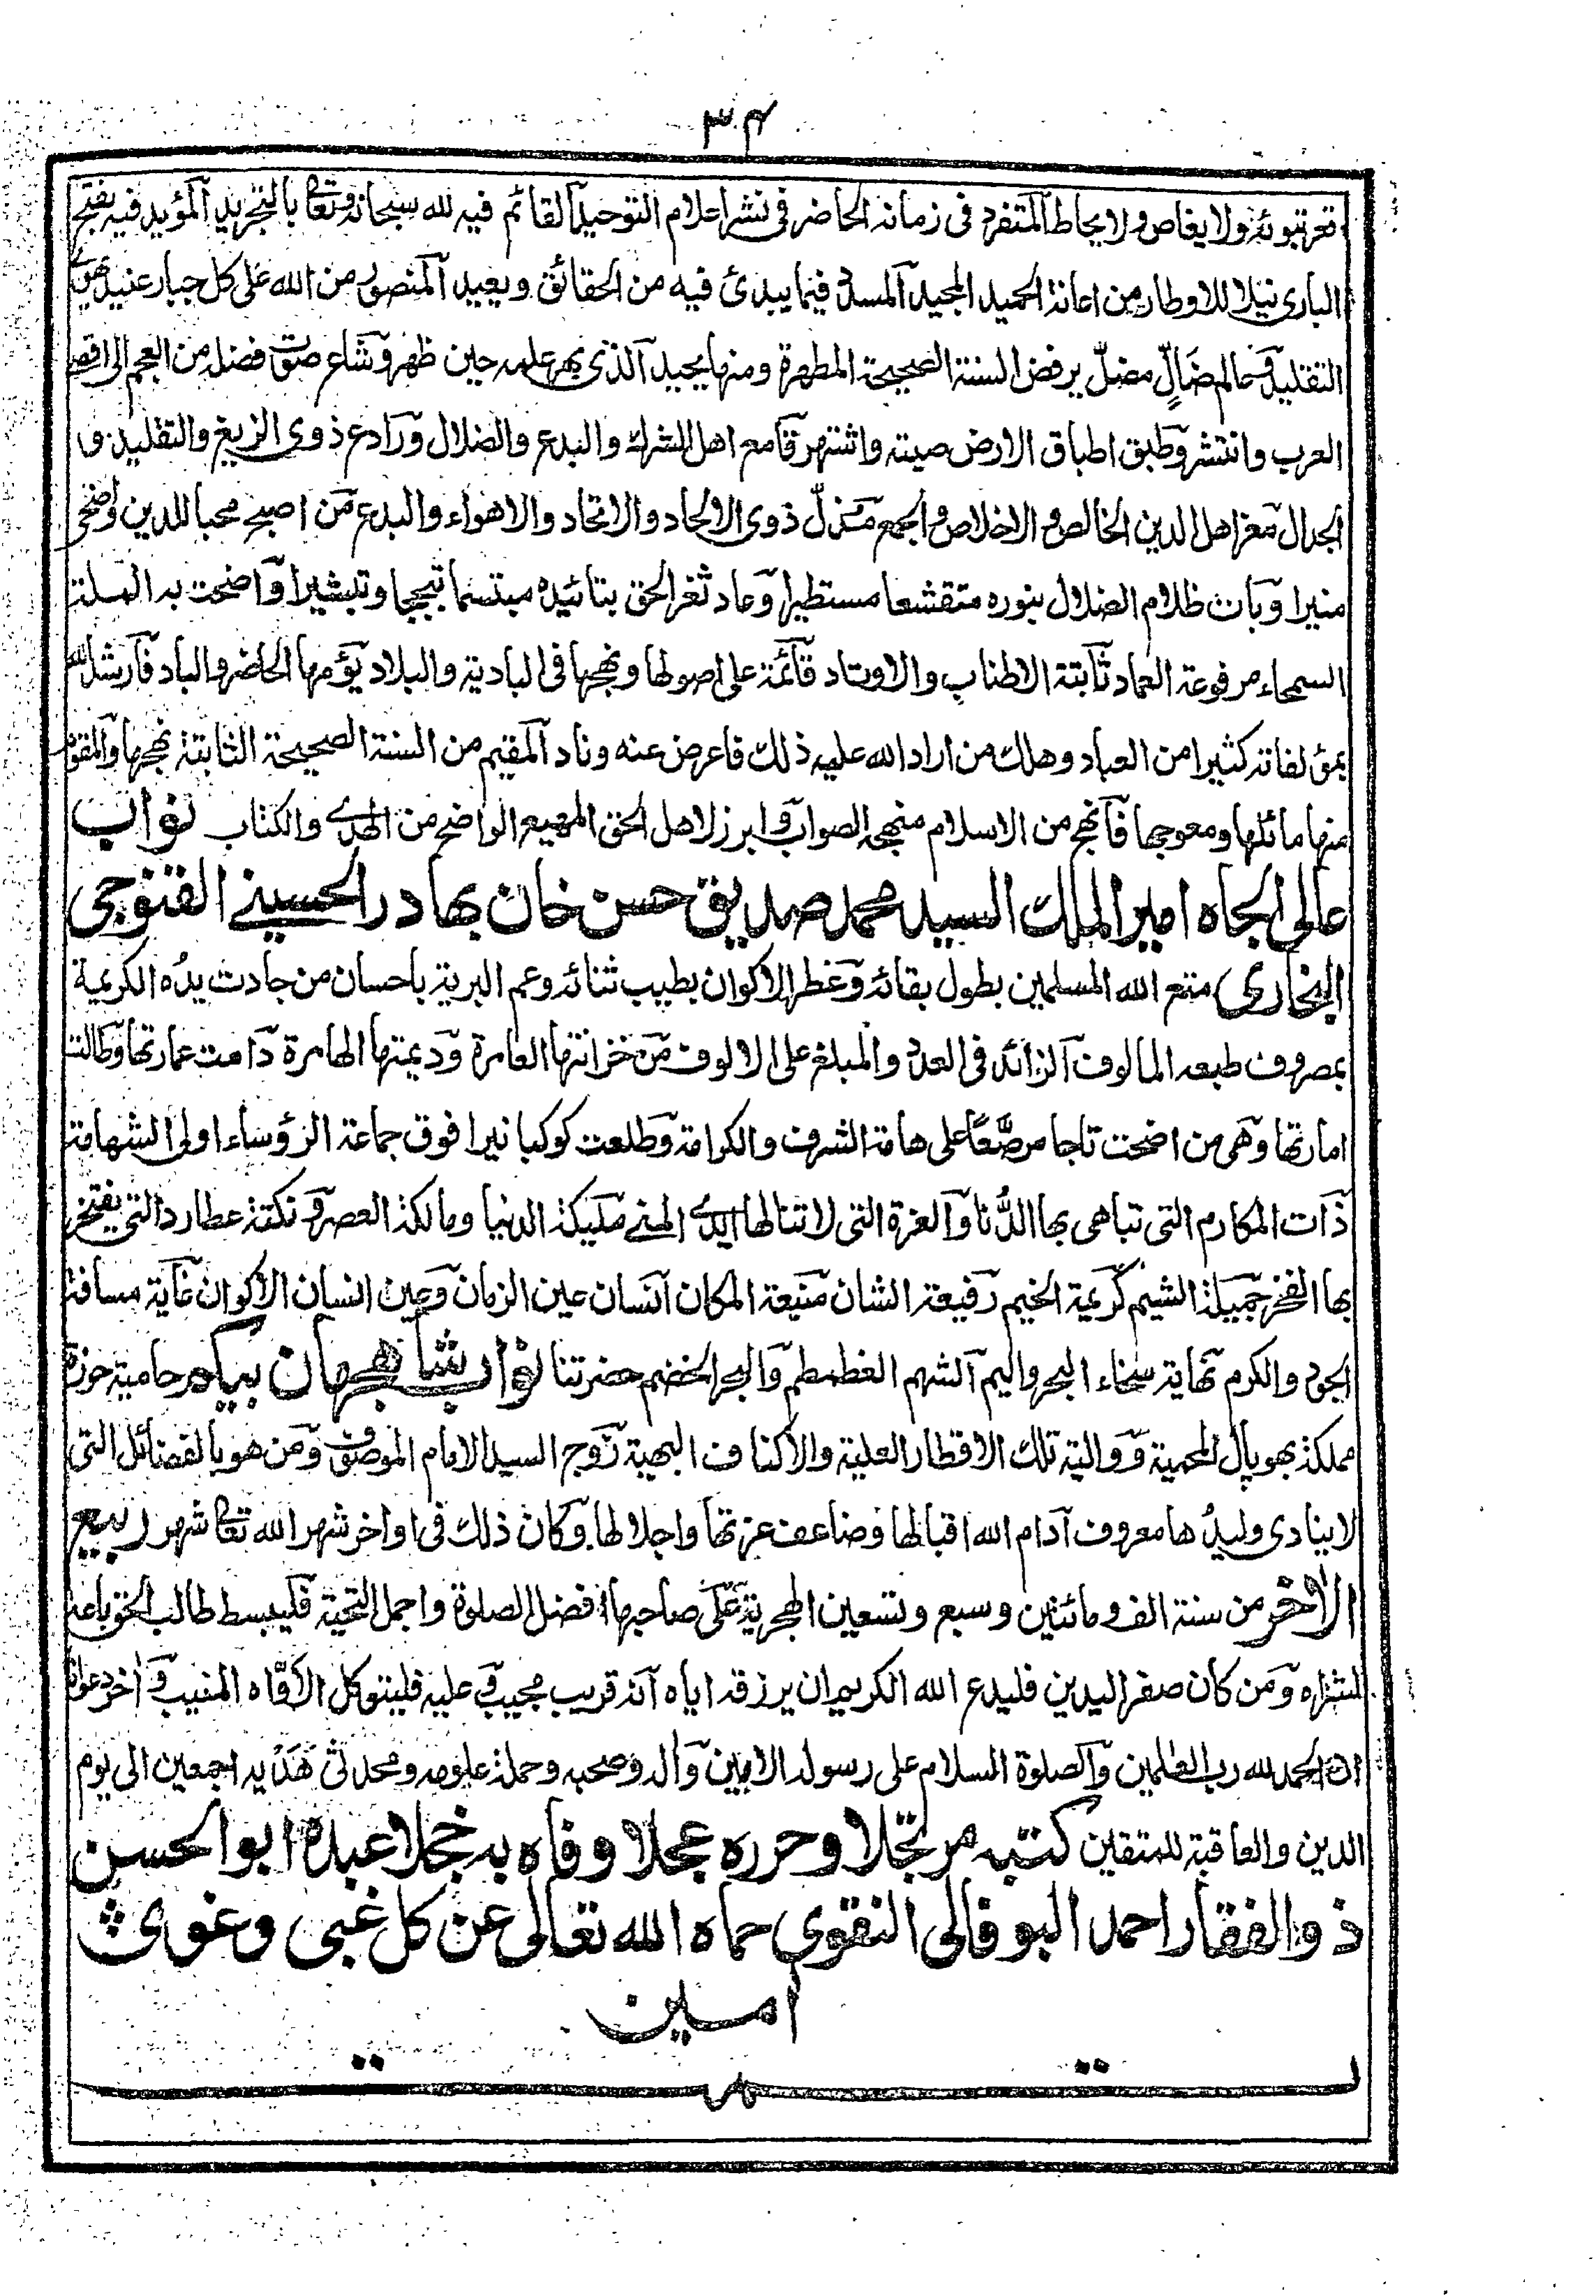 ٣٠٤
ولا يغاص ولا يحاط المتفرد فى زمانه الحاضر فى نشر اعلام التوحيد القائم فيه لله سبحانه وتعا بالتجريد المؤيد فيه بفتح
البارى نيلا للاوطار من اعانة الحميد المجيد المسدد فيما يبدئ فيه من الحقائق ويعيد المنصور من الله على كل جبار عنيد
التقليد عالم ضالٍ مضلّ يرفض السنة الصحيحة المطهرة ومنها يحيد الذى بهر علمه حين ظهر وشاع صيت فضله من العجم الى اقصى
العرب وانتشر وطبق اطباق الارض صيته واشتهر قامع اهل الشرك والبدع والضلال ورادع ذوى الزيغ والتقليد و
الجدال معز اهل الدين الخالص والاخلاص والجمع مذلّ ذوى الالحاد والاتحاد والاهواء والبدع من اصبح محبا للدين واضحى
منيرا وبات ظلام الضلال بنوره متقشعا مستطيرا وعاد ثغر الحق بتائيده مبتسما تبججا وتبشيرا واضحت به الملة
السمحاء مرفوعة العماد ثابتة الاطناب والاوتاد قائمة على اصولها ونهجها فى البادية والبلاد يؤمها الحاضر والباد فارشد الله
بمؤلفاته كثيرا من العباد وهلك من اراد الله عليه ذلك فاعرض عنه وناد المقيم من السنة الصحيحة الثابتة نهجها والمقوم
منها مائلها ومعوجها فانهج من الاسلام منهجى الصواب وابرز لاهل الحق المهيع الواضح من الهدى والكتاب نواب
عالى الجاه امير الملك السيد محمد صديق حسن خان بهادر الحسينى القنوجى
البخارى متع الله المسلمين بطول بقائه وعطر الاكوان بطيب ثنائه وعم البرية باحسان من جادت يده الكريمة
بمصروف طبعه المالوف الزائد فى العدد والمبلغ على الالوف من خزانتها العامرة وديمتها الهامرة دامت عمارتها وطالت
امارتها وهى من اضحت تاجا مرصّعًا على هامة الشرف والكرامة وطلعت كوكبا نيرا فوق جماعة الرؤساء اولى الشهامة
ذات المكارم التى تباهى بها الدُّنا والعزة التى لا تنالها ايدى المنى مليكة الدنيا ومالكة العصر ونكتة عطارد التى يفتخر
بها الفخر جميلة الشيم كريمة الخيم رفيعة الشان منيعة المكان انسان عين الزمان وعين انسان الاكوان غاية مسافة
الجود والكرم نهاية سخاء البحر واليم الشهم الغطمطم والبحر الخضم حضرتنا نواب شاهجهان بيگم حامية حوزة
مملكة بهوپال المحمية ووالية تلك الاقطار العلية والاكناف البهية زوج السيد الامام الموصوف ومن هو بالفضائل التى
لا ينادى وليدُها معروف ادام الله اقبالها وضاعف عزتها واجلالها وكان ذلك فى اواخر شهر الله تعا شهر ربيع
الاٰخر من سنة الف ومائتين وسبع وتسعين الهجرية على صاحبها افضل الصلوة واجمل التحية فليبسط طالب الحق باعه
لشراه ومن كان صفر اليدين فليدع الله الكريم ان يرزقه اياه انه قريب مجيب وعليه فليتوكل الاوّاه المنيب واٰخر دعوانا
ان الحمد لله رب العلمين والصلوة السلام على رسوله الامين واله وصحبه وحملة علومه ومحدثى هَدْيه اجمعين الى يوم
الدين والعاقبة للمتقين كتبه مرتجلا وحرره عجلا وفاه به خجلا عبده ابو الحسن
ذو الفقار احمد البوفالى النقوى حماه الله تعالى عن كل غبى وغوى
اٰمين
تمت